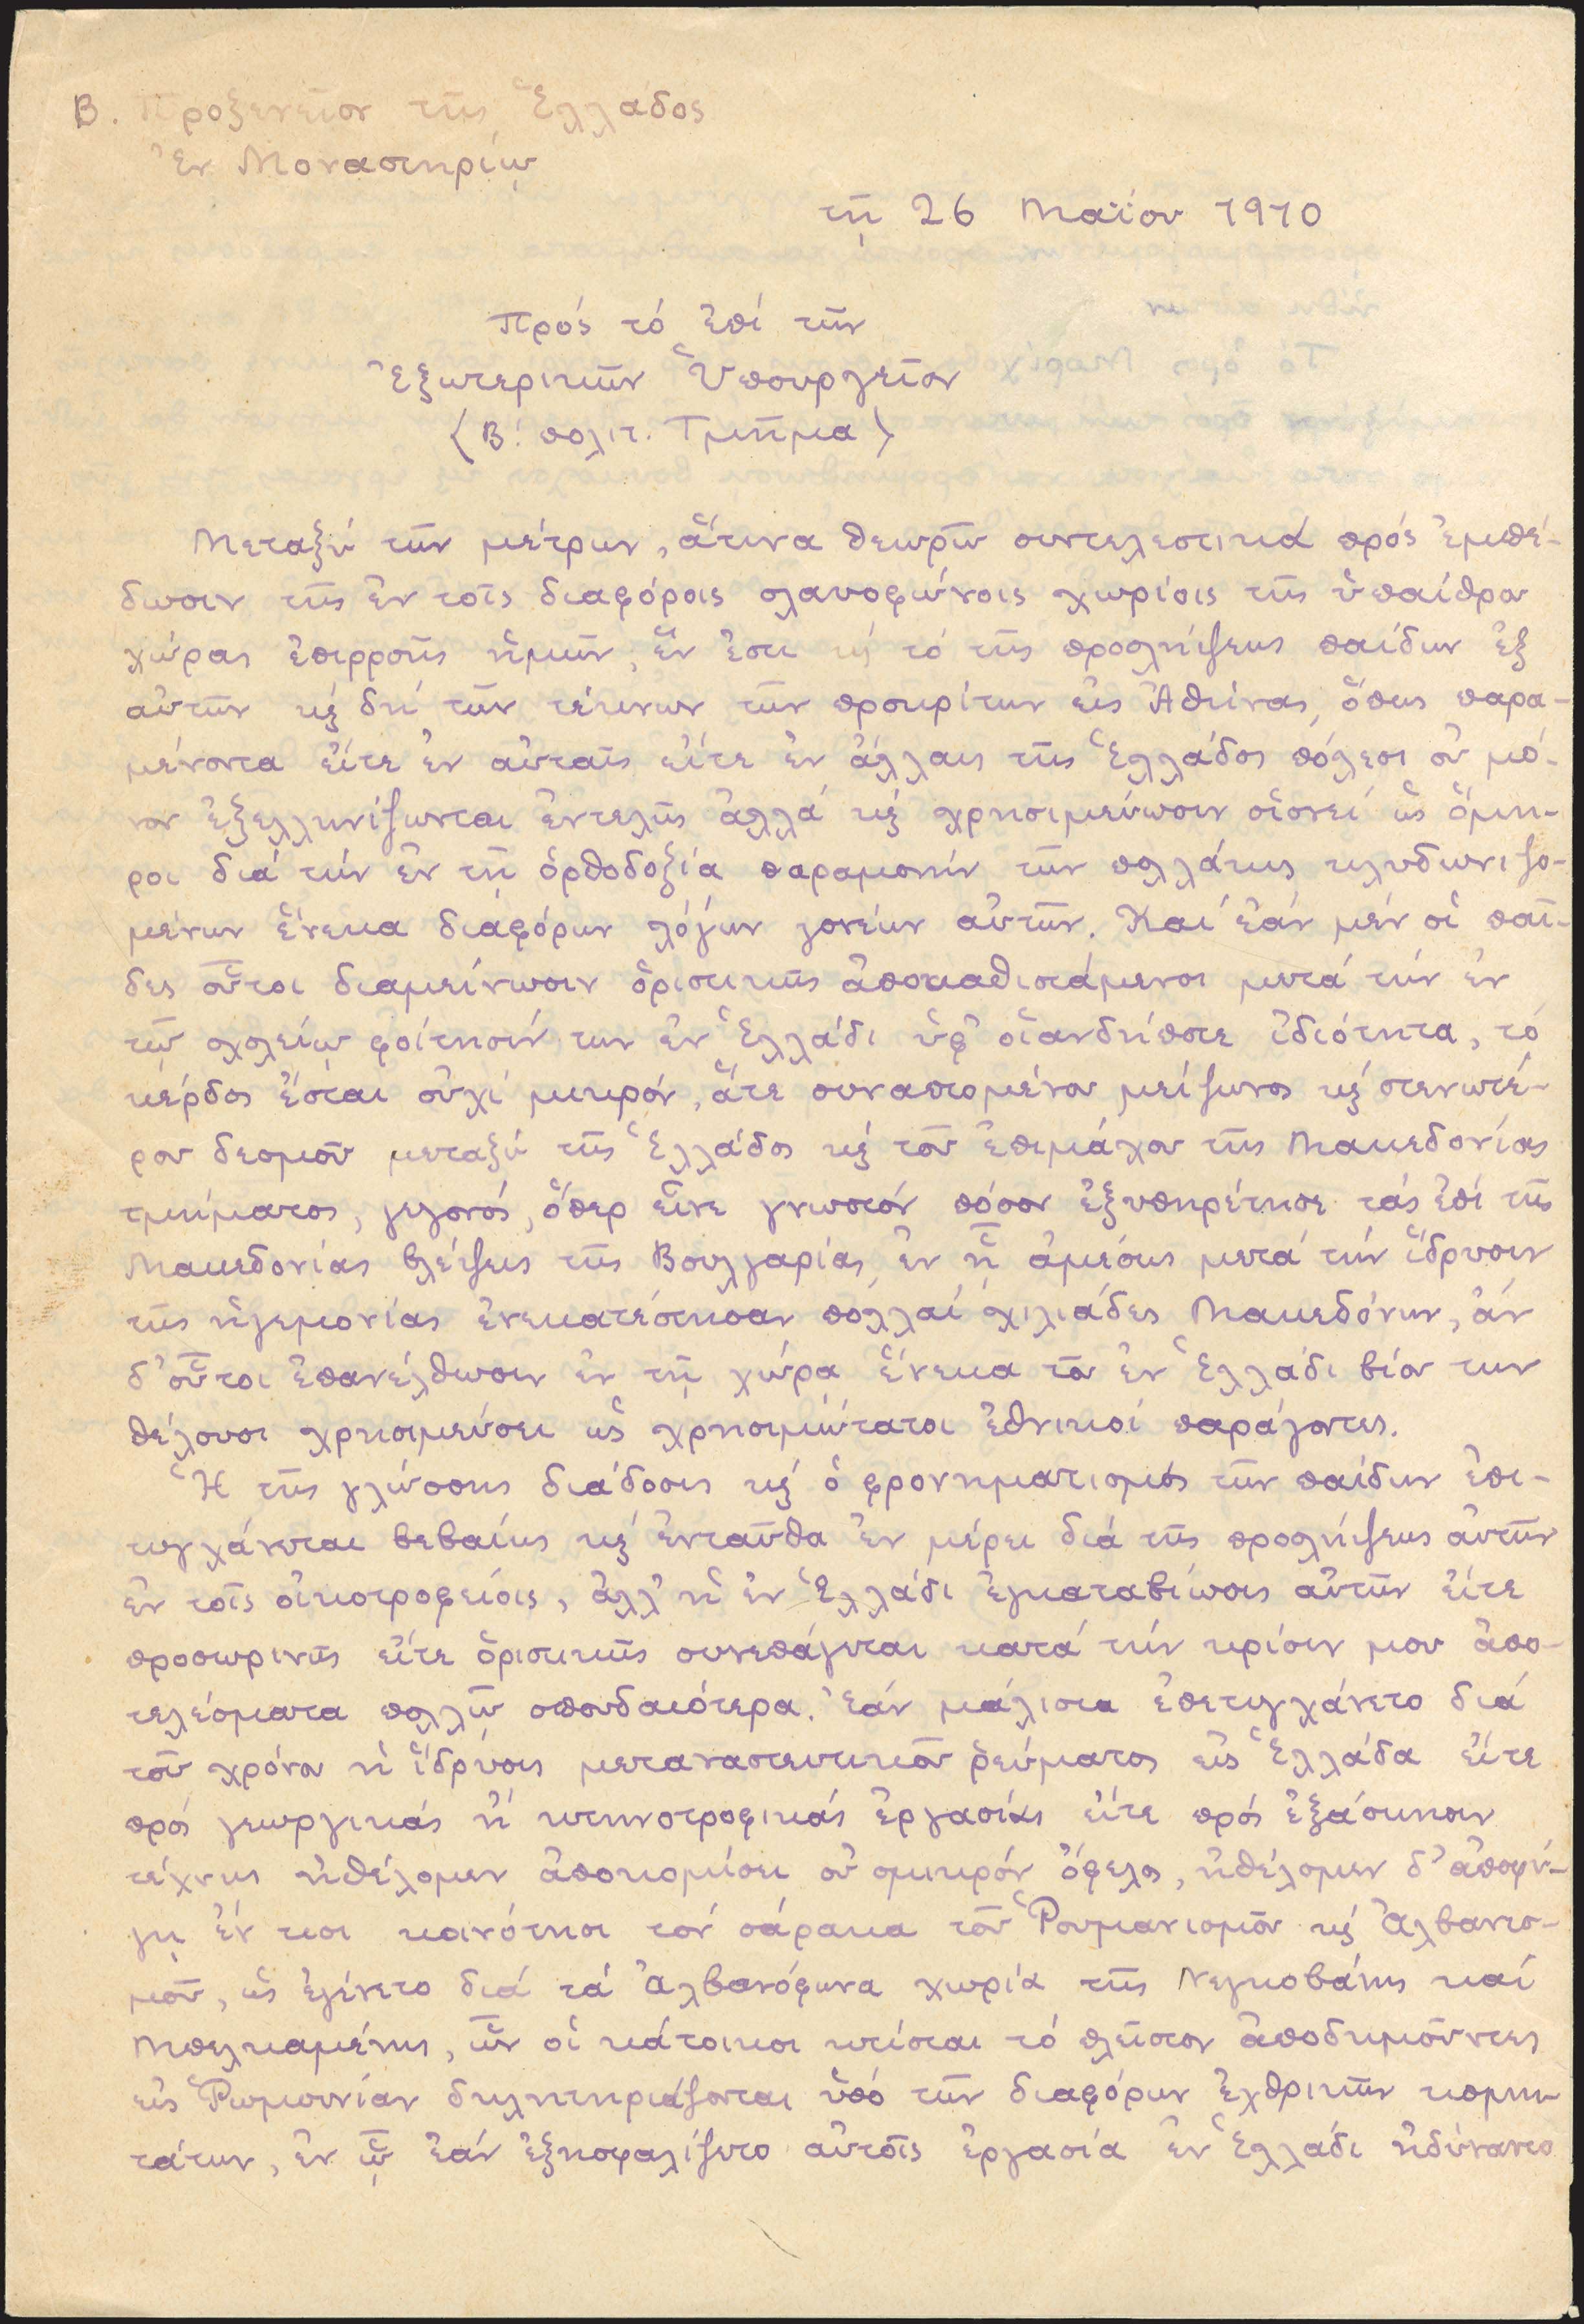 Β. Προξενεῖον τῆς Ἑλλάδος
Ἐν Μοναστηρίῳ
τῇ 26 Μαΐου 1910
Πρός τό ἐπί τῶν
Ἐξωτερικῶν Ὑπουργεῖον
(Β! πολιτ. Τμῆμα)
Μεταξύ τῶν μέτρων, ἅτινα θεωρῶ συντελεστικά πρός ἐμπέ-
δωσιν τῆς ἐν τοῖς διαφόροις σλαυοφώνοις χωρίοις τῆς ὑπαίθρου
χώρας ἐπιρροῆς ἡμῶν, ἕν ἐστι κ´ τό τῆς προσλήψεως παίδων ἐξ
αὐτῶν κ´ δή τῶν τέκνων τῶν προκρίτων εἰς Ἀθήνας, ὅπως παρα-
μένοντα εἴτε ἐν αὐταῖς εἴτε ἐν ἄλλαις τῆς Ἑλλάδος πόλεσι οὐ μό-
νον ἐξελληνίζωνται ἐντελῶς ἀλλά κ´ χρησιμεύωσιν οἱονεί ὡς ὅμη-
ροι διά τήν ἐν τῇ ὀρθοδοξίᾳ παραμονήν τῶν πολλάκις κλυδωνιζο-
μένων ἕνεκα διαφόρων λόγων γονέων αὐτῶν. Καί ἐάν μέν οἱ παῖ-
δες οὗτοι διαμείνωσιν ὁριστικῶς ἀποκαθιστάμενοι μετά τήν ἐν
τῷ σχολείῳ φοίτησίν των ἐν Ἑλλάδι ὑφ' οἱανδήποτε ἰδιότητα, τό
κέρδος ἔσται οὐχί μικρόν, ἅτε συναπτομένου μείζωνος κ´ στενωτέ-
ρου δεσμοῦ μεταξύ τῆς Ἑλλάδος κ´ τοῦ ἐπιμάχου τῆς Μακεδονίας
τμήματος, γεγονός, ὅπερ εἶνε γνωστόν πόσον ἐξυπηρέτησε τάς ἐπί τῆς
Μακεδονίας βλέψεις τῆς Βουλγαρίας, ἐν ᾗ ἀμέσως μετά τήν ἵδρυσιν
τῆς ἡγεμονίας ἐνεκατέστησαν πολλαί χιλιάδες Μακεδόνων, ἄν
δ' οὗτοι ἐπανέλθωσιν ἐν τῇ χώρᾳ ἕνεκα τοῦ ἐν Ἑλλάδι βίου των
θέλουσι χρησιμεύσει ὡς χρησιμώτατοι ἐθνικοί παράγοντες.
Ἡ τῆς γλώσσης διάδοσις κ´ ὁ φρονηματισμός τῶν παίδων ἐπι-
τυγχάνεται βεβαίως κ´ ἐνταῦθα ἐν μέρει διά τῆς προσλήψεως αὐτῶν
ἐν τοῖς οἰκοτροφείοις, ἀλλ' ἡ ἐν Ἑλλάδι ἐγκαταβίωσις αὐτῶν εἴτε
προσωρινῶς εἴτε ὁριστικῶς συνεπάγεται κατά τήν κρίσιν μου ἀπο-
τελέσματα πολλῷ σπουδαιότερα. Ἐάν μάλιστα ἐπετυγχάνετο διά
τοῦ χρόνου ἡ ἵδρυσις μεταναστευτικοῦ ῥεύματος εἰς Ἑλλάδα εἴτε
πρός γεωργικάς ἤ κτηνοτροφικάς ἐργασίας εἴτε πρός ἐξάσκησιν
τέχνης ἠθέλομεν ἀποκομίσει οὐ σμικρόν ὄφελος, ἠθέλομεν δ' ἀποφύ-
γῃ ἔν τισι κοινότησι τόν σάρακα τοῦ Ῥουμανισμοῦ κ´ Ἀλβανισ-
μοῦ, ὡς ἐγένετο διά τά Ἀλβανόφωνα χωρία τῆς Νεγκοβάνης καί
Μπελκαμένης, ὧν οἱ κάτοικοι κτίσται τό πλεῖστον ἀποδημοῦντες
εἰς Ῥωμουνίαν δηλητηριάζονται ὑπό τῶν διαφόρων ἐχθρικῶν κομη-
τάτων, ἐν ᾧ ἐάν ἐξησφαλίζετο αὐτοῖς ἐργασία ἐν Ἑλλάδι ἠδύναντο